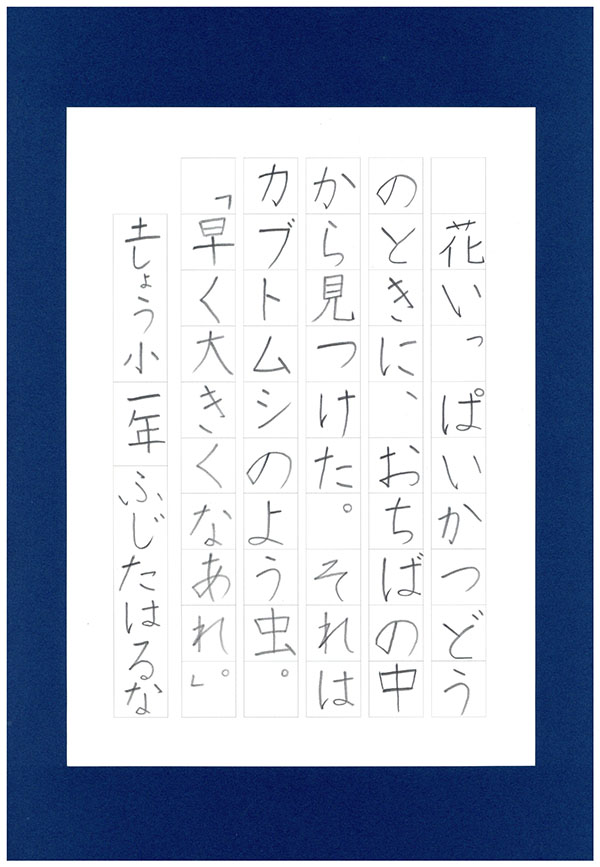 花いっぱいかつどう
のときに、おちばの中
から見つけた。それは
カブトムシのよう虫。
「早く大きくなあれ」。
土しょう小一年ふじたはるな